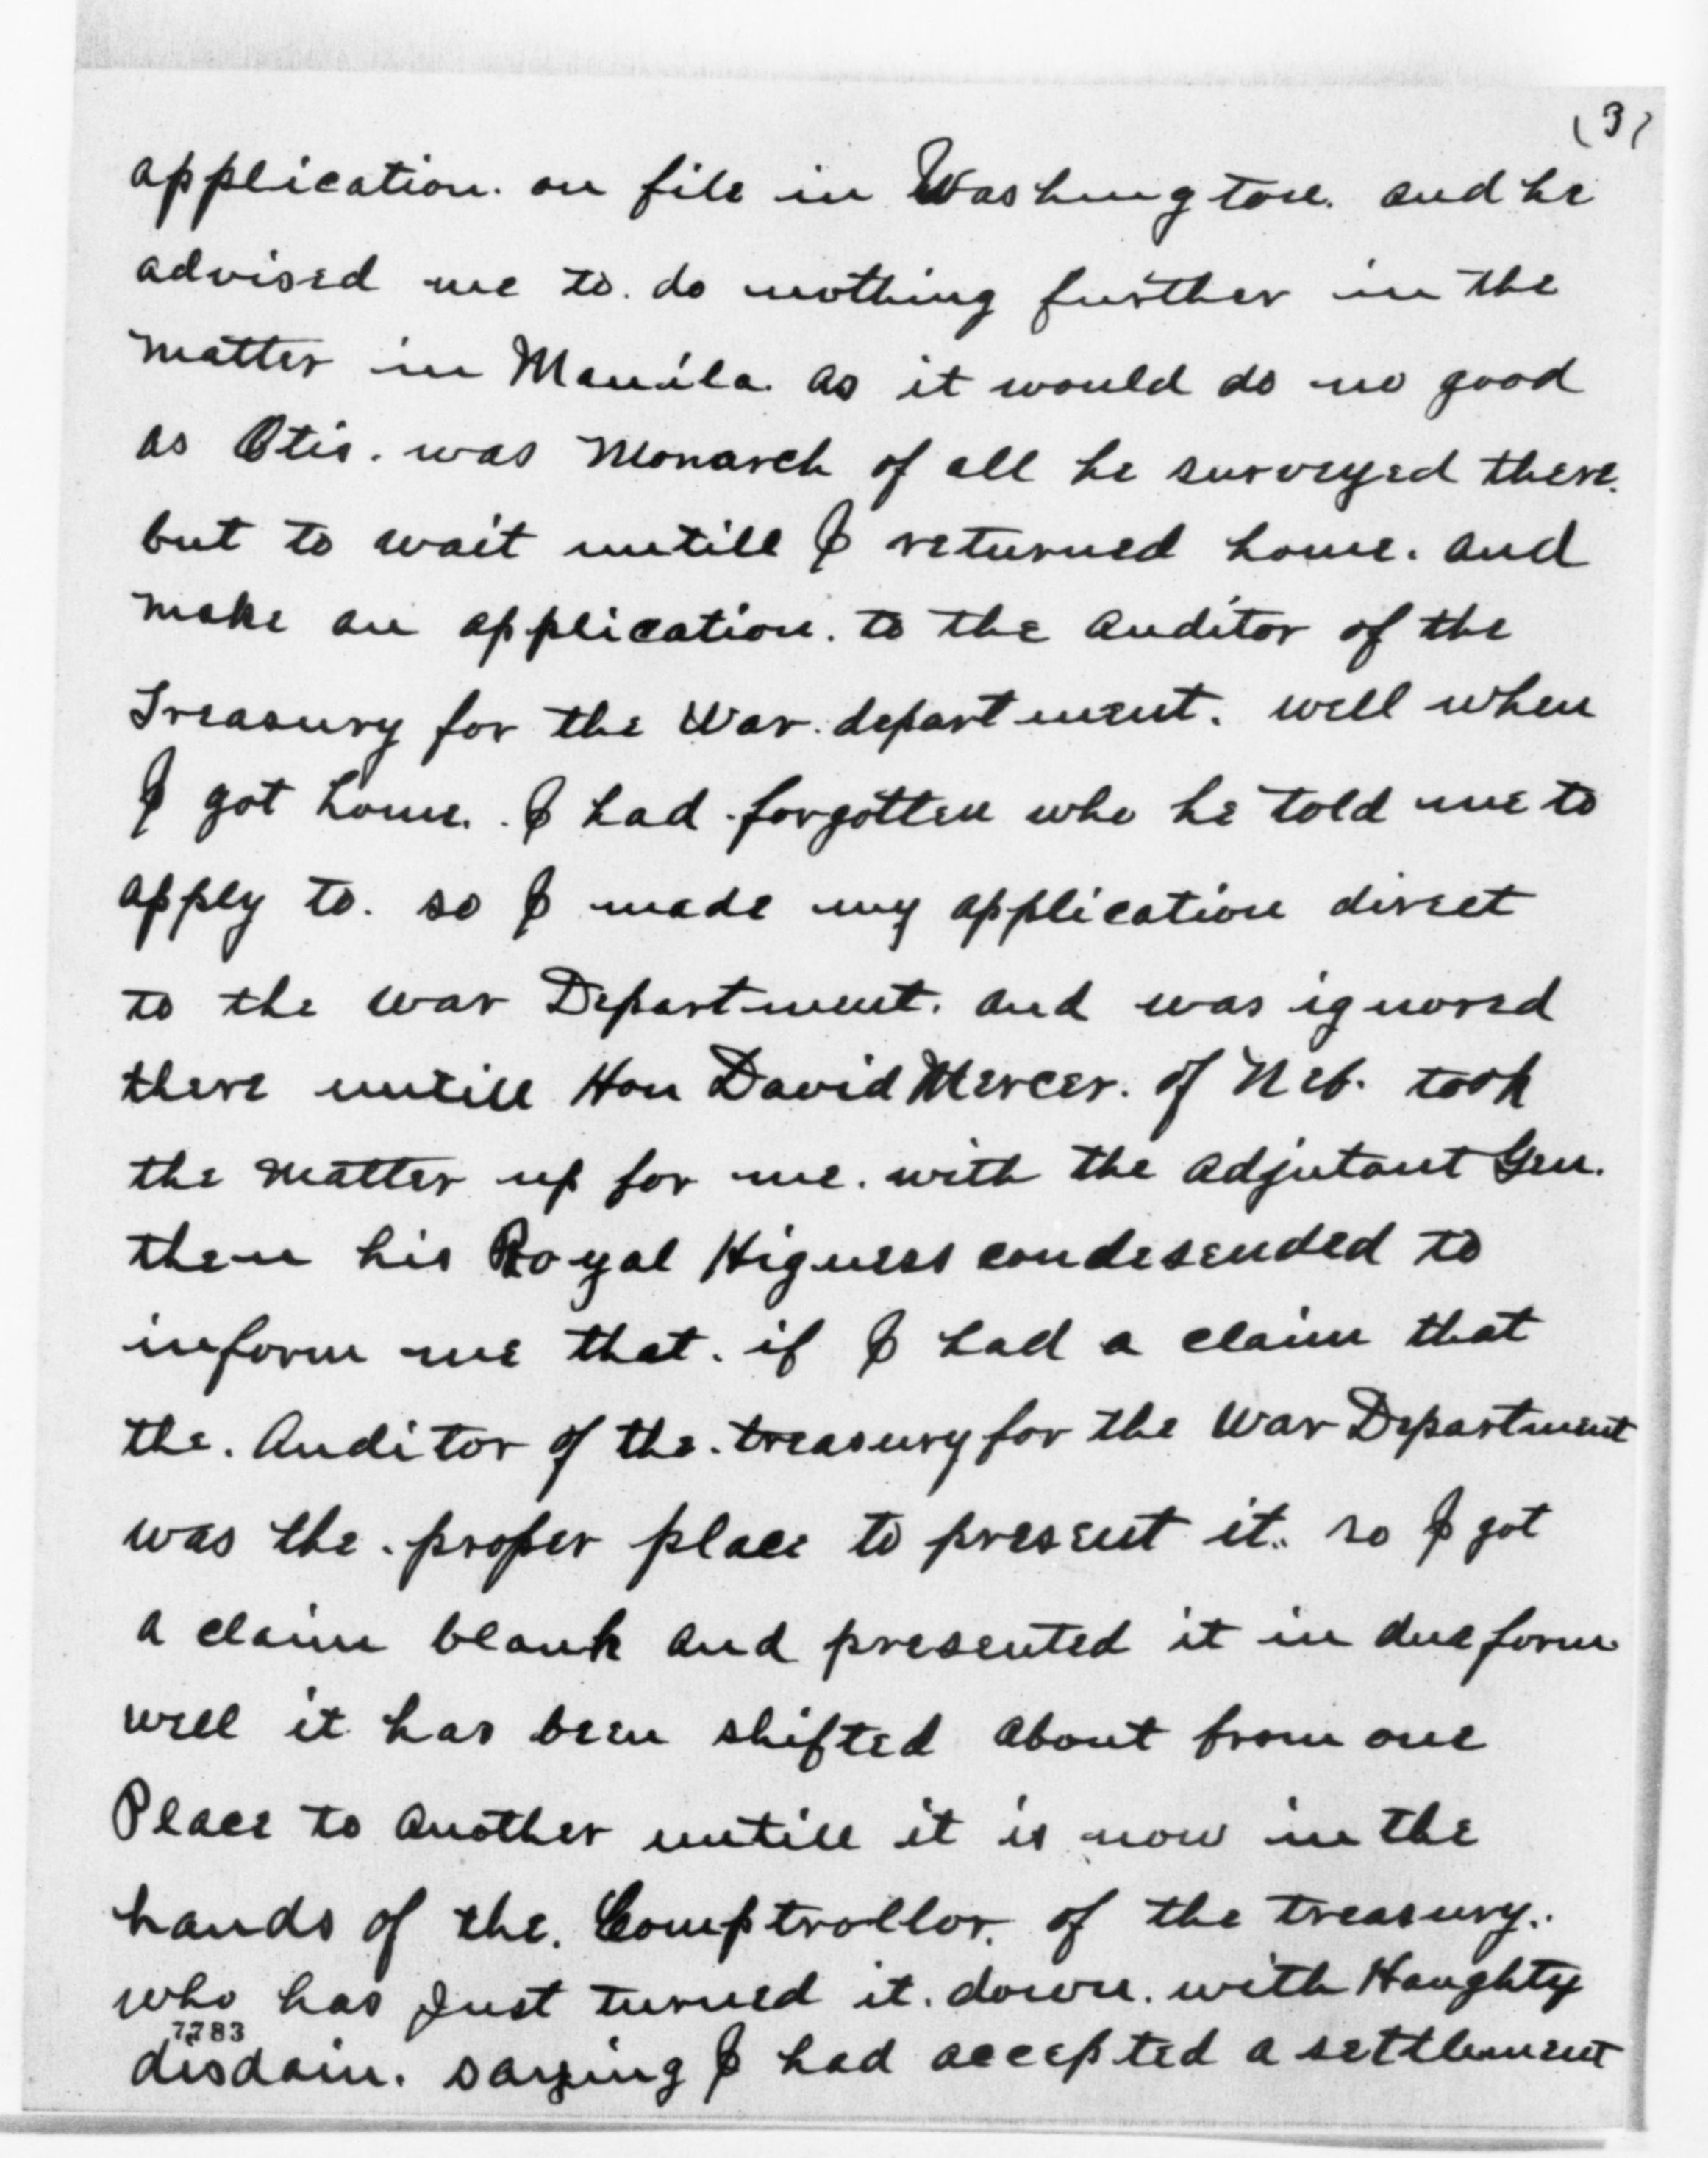 (3)
application. on file in Washington. and he
advised me to. do nothing further in the
matter in Manila. as it would do no good
as Otis. was Monarch of all he surveyed there.
but to wait untill I returned home. and
make an application. to the Auditor of the
Treasury for the War. department. well when
I got home. I had forgotten who he told me to
apply to. so I made my application direct
to the War Department. and was ignored
there untill Hon David Mercer. of Neb. took
the matter up for me. with the Adjutant Gen.
then his Royal Higness condesended to
inform me that. if I had a claim that
the. Auditor of the. treasury for the War Department
was the. proper place to present it. so I got
a claim blank and presented it in due form
well it has been shifted about from one
Place to another untill it is now in the
hands of the. Comptrollor. of the treasury.
who has Just turned it. down. with Haughty
7783
disdain. saying I had accepted a settlement